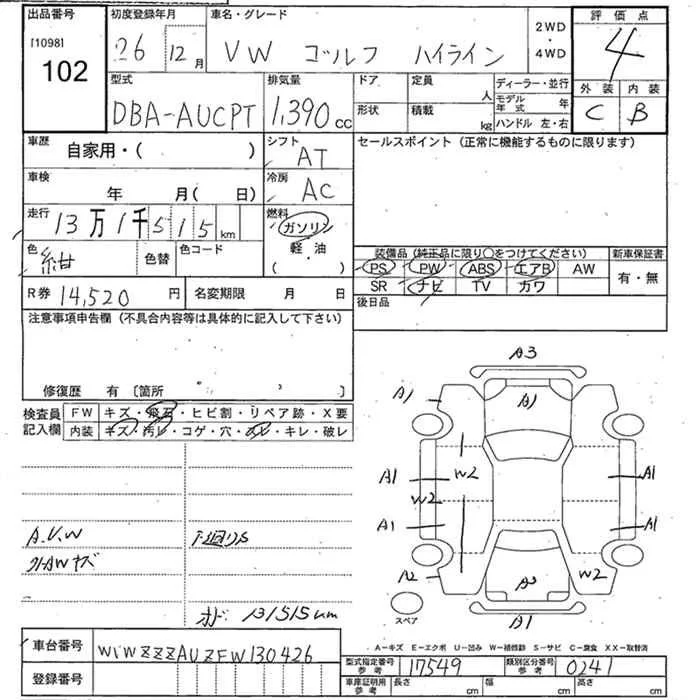 出品番号
[1098]
102
初度登録年月
26 12月
車名・グレード
VW ゴルフ ハイライン
2WD
・
4WD
評価点
4
外装 内装
C B
型式
DBA-AUCPT
排気量
1,390cc
ドア
定員
人
形状
積載
kg
ディーラー・並行
モデル年式 年
ハンドル 左・右
車歴
自家用・( )
シフト
AT
セールスポイント (正常に機能するものに限ります)
車検
年 月(日)
冷房
AC
走行
13万1千515km
燃料
ガソリン
軽・油
( )
色
紺
色替
色コード
装備品(純正品に限り○をつけてください)
新車保証書
PS PW ABS エアB AW
有・無
SR ナビ TV カワ
R券 14,520円
名変期限 月 日
後日品
注意事項申告欄 (不具合内容等は具体的に記入して下さい)
修復歴 有 〔箇所 〕
検査員
記入欄
FW キズ・飛石・ヒビ割・リペア跡・X要
内装 キズ・汚レ・コゲ・穴・スレ・キレ・破レ
A.U.W
下廻りS
オド 131515km
A3
A1
A1
A1
W2
W2
A1
A1
A1
A2
W2
A1
スペア
A-キズ E-エクボ U-凹み W-補修跡 S-サビ C-腐食 XX-取替済
車台番号
WVWZZZAUZFW130426
登録番号
型式指定番号
参考
17549
類別区分番号
参考
0241
車庫証明用
参考
長さ cm
幅 cm
高さ cm